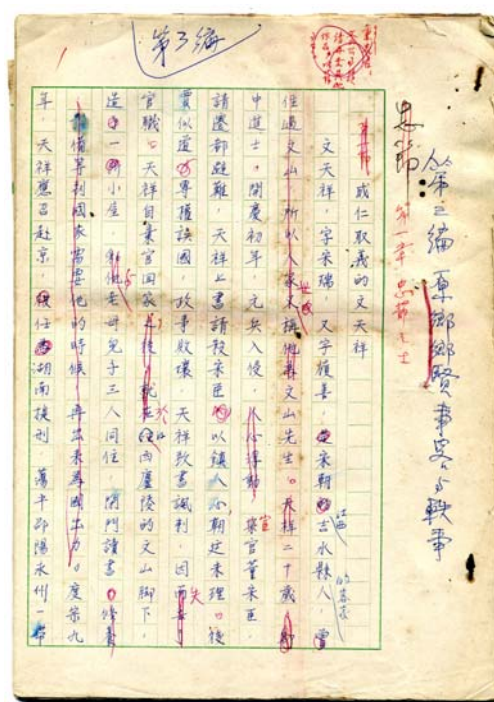 第三編
第三編 原鄉鄉賢事略與軼事
忠節 第一章 忠節之士
成仁取義的文天祥
文天祥，字宋瑞，又字履善，宋朝吉水縣人，
江西
的客家
住過文山，所以人家文山先生。天祥二十歲
中進士，開慶初年，元兵入侵，宦官董宋臣，
請遷都避難，天祥上書請殺宋臣以鎮人心朝廷未理。後
賈似道專權誤國，政事敗壞，天祥致書諷刺，因而失
官職。天祥自棄官回家之後，就在西廬陵的文山腳下，
造一小屋，老母兒子三人同住，閉門讀書修養
準備等到國家需要他的時候，再出來為國出力。度宗九
年，天祥應召赴京，任湖南提刑，蕩平邵陽永州一帶